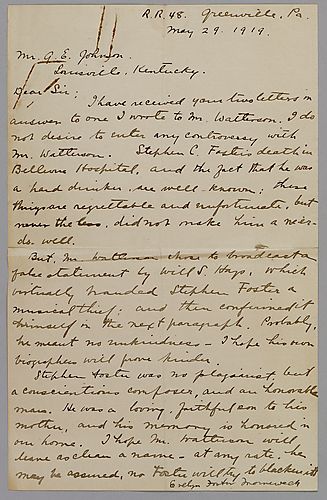 R.R. 48. Greenville, Pa.
May 29. 1919.
Mr. G. E. Johnson.
Louisville, Kentucky.
Dear Sir:
I have received your two letters in
answer to one I wrote to Mr. Watterson. I do
not desire to enter any controversy with
Mr. Watterson. Stephen C. Foster's death in
Bellevue Hospital, and the fact that he was
a hard drinker, are well-known; these
things are regrettable and unfortunate, but
never the less, did not make him a ne'er-
do. well.
But, Mr. Watterson chose to broadcast a
false statement by Will S. Hays, which
virtually branded Stephen Foster a
musical thief; and then confirmed it
himself in the next paragraph. Probably,
he meant no unkindness - I hope his own
biographers will prove kinder.
Stephen Foster was no plagiarist, but
a conscientious composer, and an honorable
man. He was a loving, faithful son to his
mother, and his memory is honored in
our home. I hope Mr. Watterson will
leave as clean a name - at any rate, he
may be assured, no Foster will try to blacken it.
Evelyn Foster Morneweck